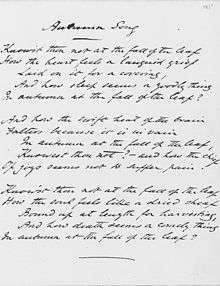 Autumn Song
Know'st thou not at the fall of the leaf
How the heart feels a languid grief
Laid on it for a covering,
And how sleep seems a goodly thing
In autumn at the fall of the leaf?
And how the swift beat of the brain
Falters because it is in vain
In autumn at the fall of the leaf,
Knowest thou not? – and how the chief
Of joys seems not to suffer pain!
Know'st thou not at the fall of the leaf
How the soul feels like a dried sheaf
Bound up at length for harvesting,
And how death seems a comely thing
In autumn at the fall of the leaf?